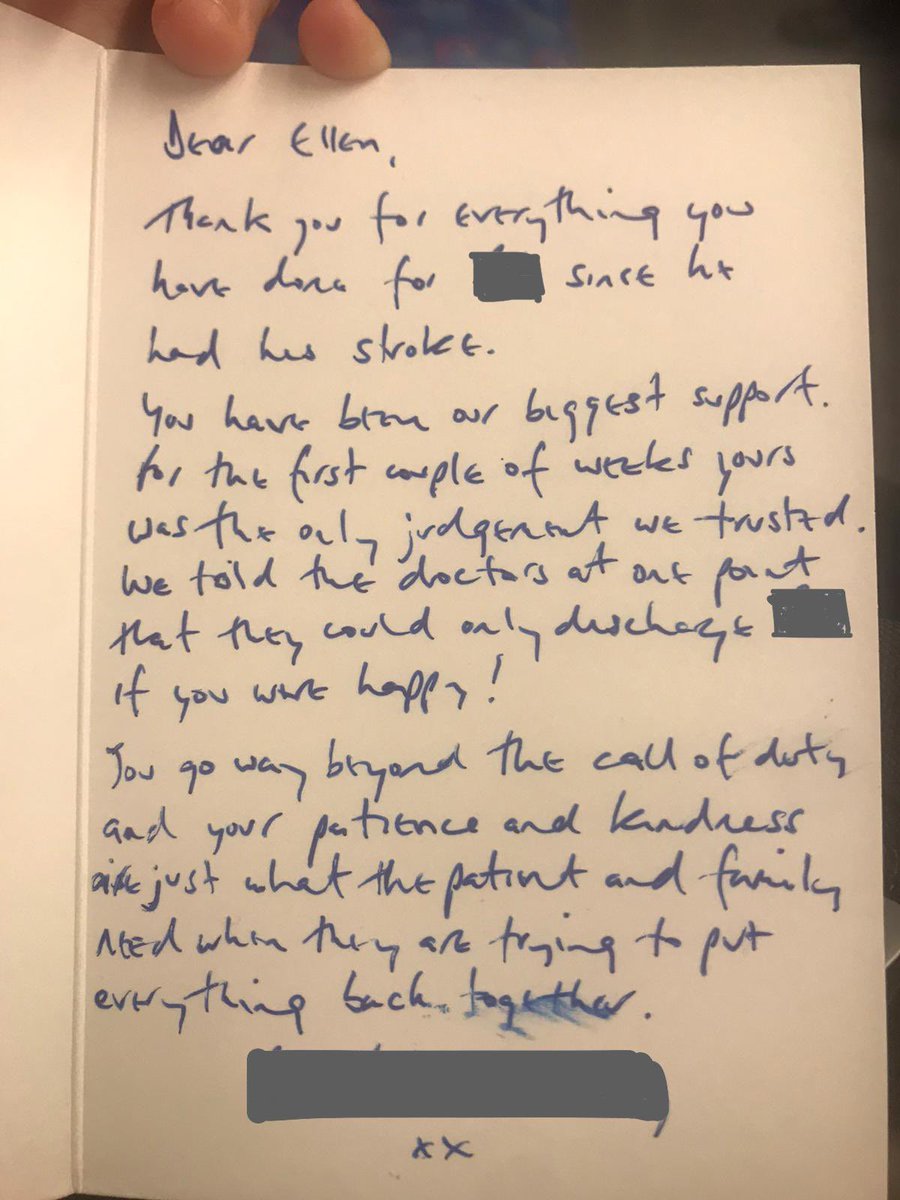 Dear Ellen,
Thank you for everything you
have done for since he
had his stroke.
You have been our biggest support.
for the first couple of weeks yours
was the only judgement we trusted.
We told the doctors at one point
that they could only discharge
if you were happy!
You go way beyond the call of duty
and your patience and kindness
are just what the patient and family
need when they are trying to put
everything back together.
xx